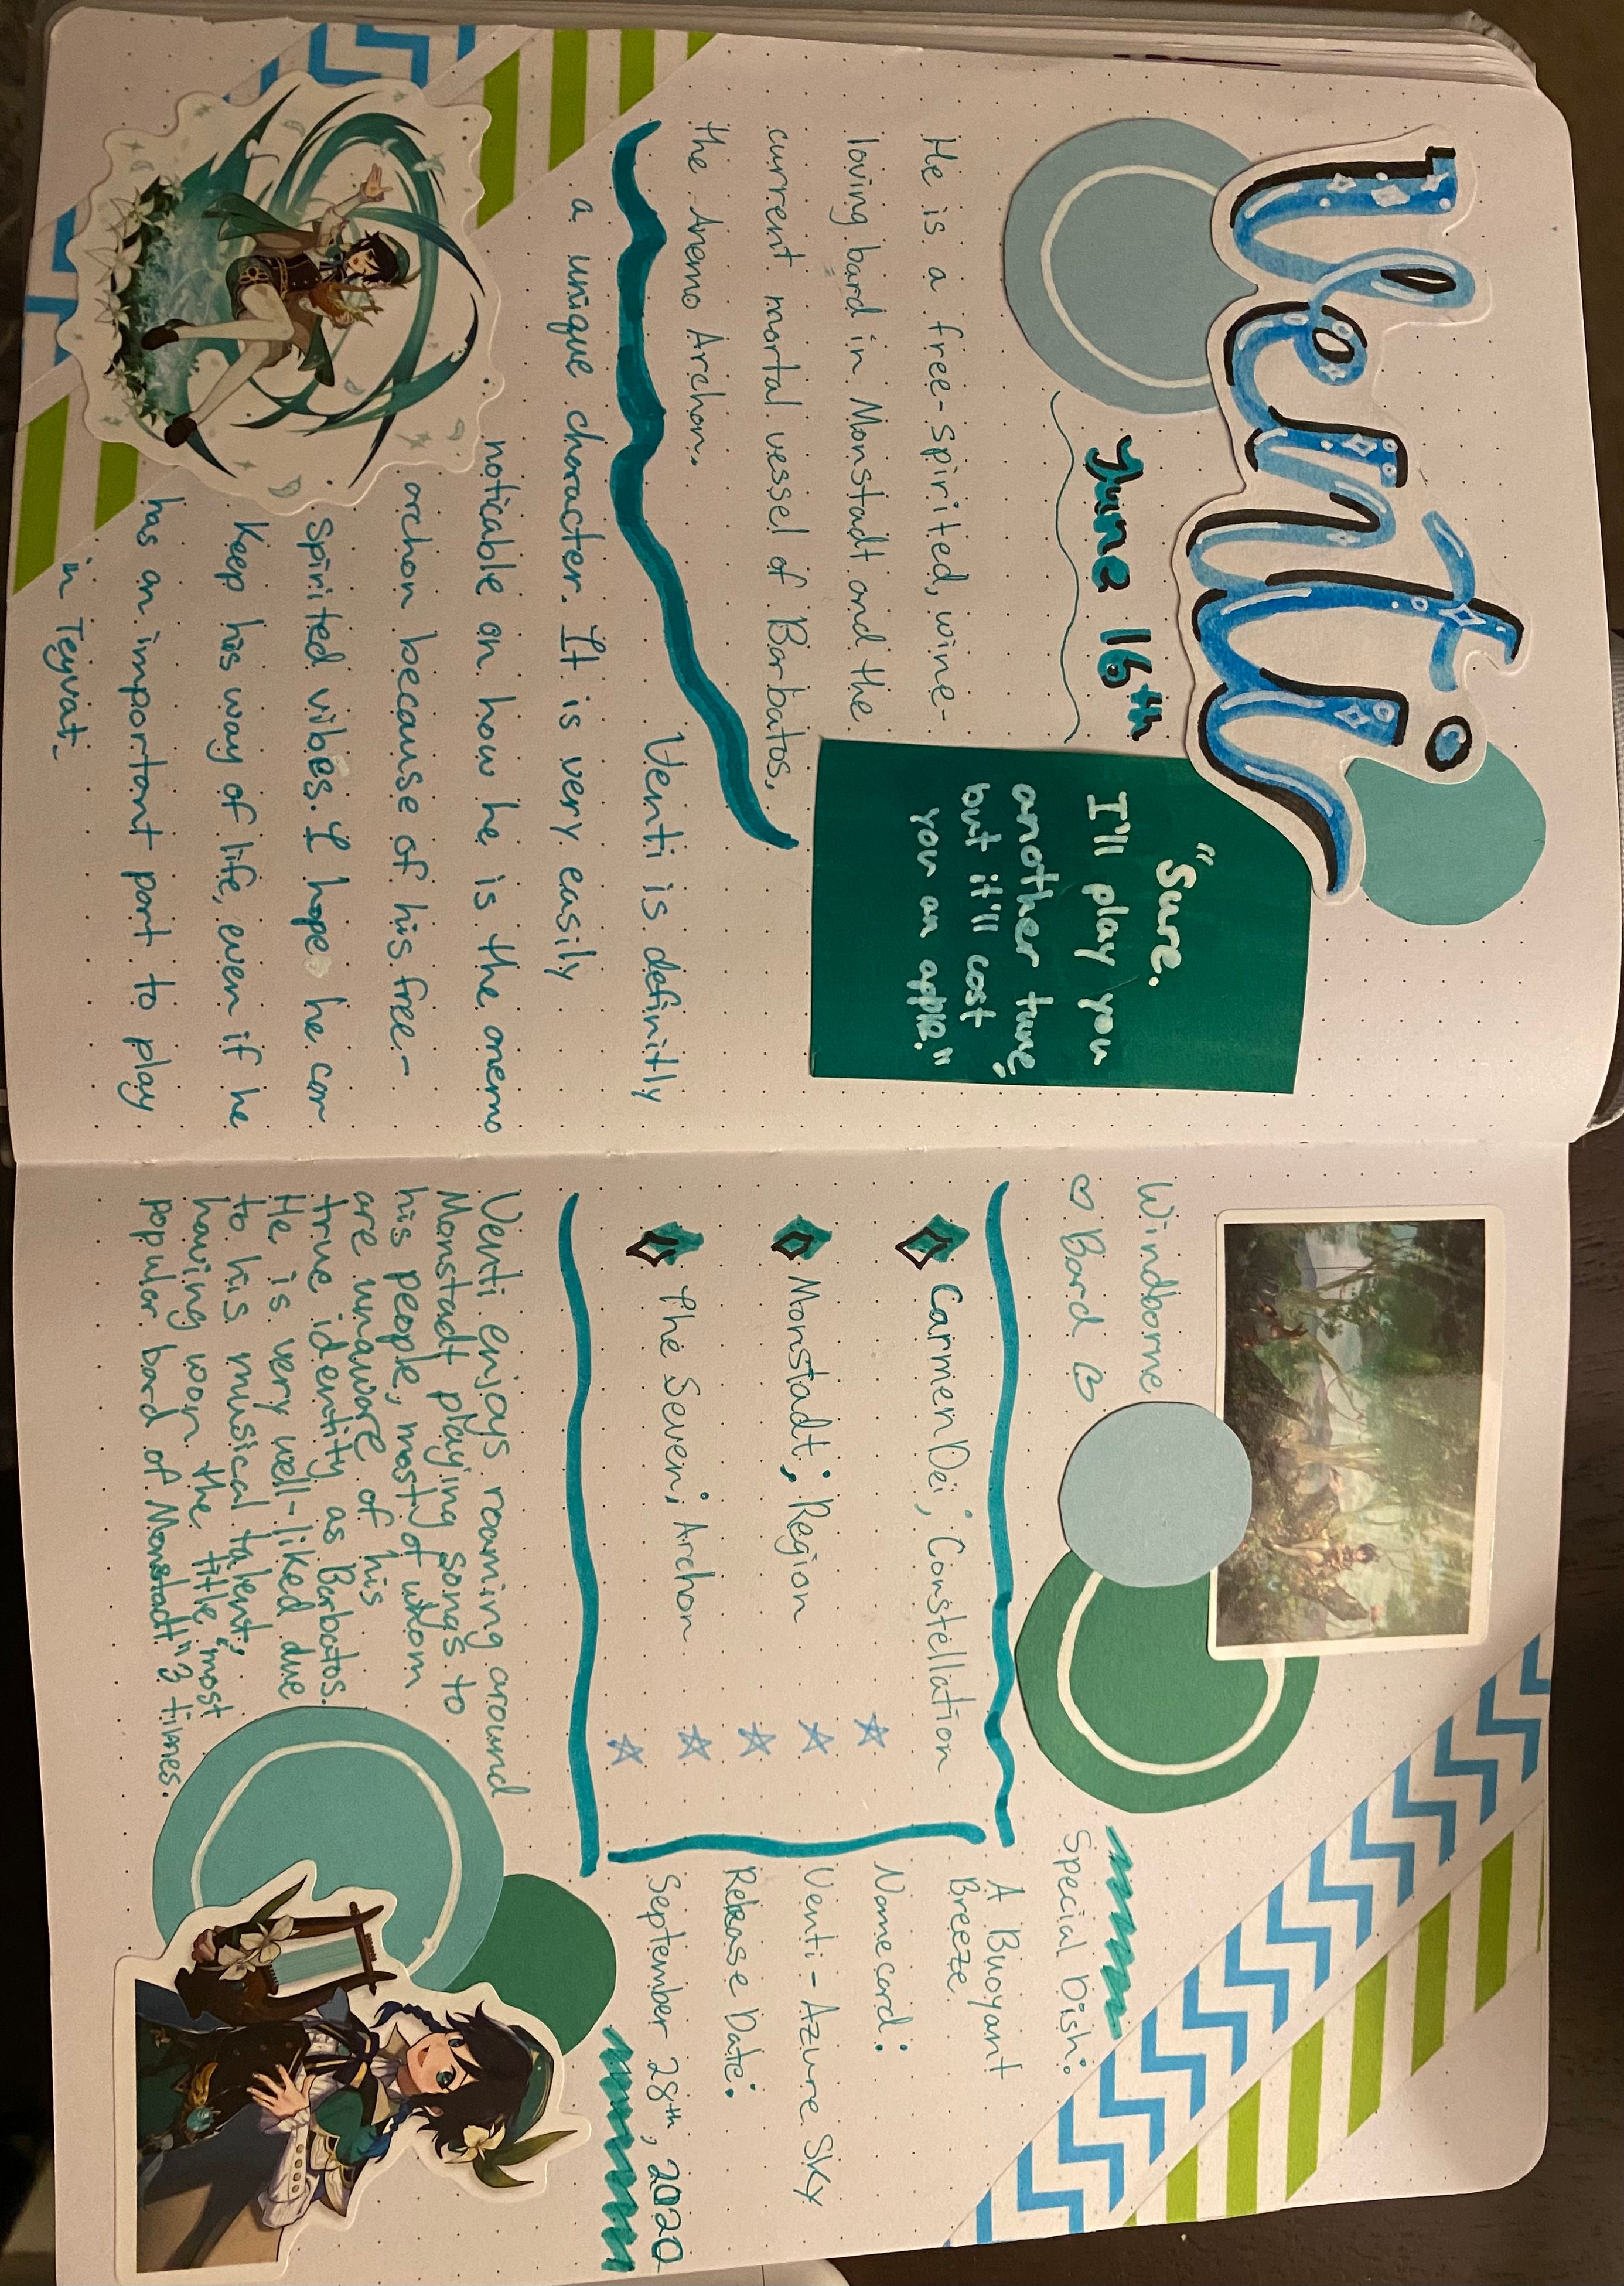 Venti
June 16th
He is a free-spirited, wine-
loving bard in Monstadt and the
current mortal vessel of Barbatos,
the Anemo Archon.
"Sure.
I'll play you
another tune,
but it'll cost
you an apple."
Venti is definitly
a unique character. It is very easily
noticable on how he is the anemo
archon because of his free-
spirited vibes. I hope he can
keep his way of life, even if he
has an important part to play
in Teyvat.
Windborne
♡ Bard ♡
Carmen Dei; Constellation
Monstadt; Region
The Seven; Archon
Venti enjoys roaming around
Monstadt playing songs to
his people, most of whom
are unaware of his
true identity as Barbatos.
He is very well-liked due
to his musical talent;
having won the title "most
popular bard of Monstadt" 3 times.
Special Dish:
A Buoyant
Breeze
Namecard:
Venti - Azure Sky
Release Date:
September 28th, 2020